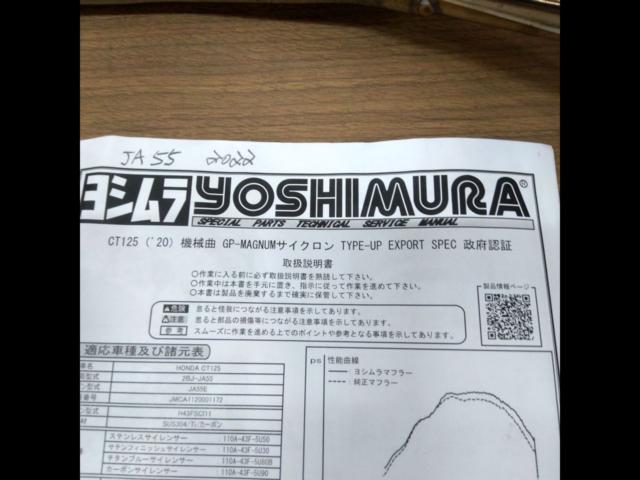 JA55 2022
ヨシムラ YOSHIMURA®
SPECIAL PARTS TECHNICAL SERVICE MANUAL
CT125 ('20) 機械曲 GP-MAGNUMサイクロン TYPE-UP EXPORT SPEC 政府認証
取扱説明書
○作業に入る前に必ず取扱説明書を熟読して下さい。
○作業中は本書を手元に置き、指示に従って作業を進めて下さい。
○本書は製品を廃棄するまで確実に保管して下さい。
製品情報ページ
危険 怠ると怪我につながる注意事項を示してあります。
注意 怠ると部品の損傷等につながる注意事項を示してあります。
参考 スムーズに作業を進める上でのポイントや参考となる事項を示してあります。
適応車種及び諸元表
車名 HONDA CT125
型式 2BJ-JA55
型式 JA55E
番号 JMCA1120001172
型式
SUS304/Ti/カーボン
ステンレスサイレンサー 110A-43F-5U50
サテンフィニッシュサイレンサー 110A-43F-5U30
チタンブルーサイレンサー 110A-43F-5U80B
カーボンサイレンサー 110A-43F-5U90
ps 性能曲線
ヨシムラマフラー
純正マフラー